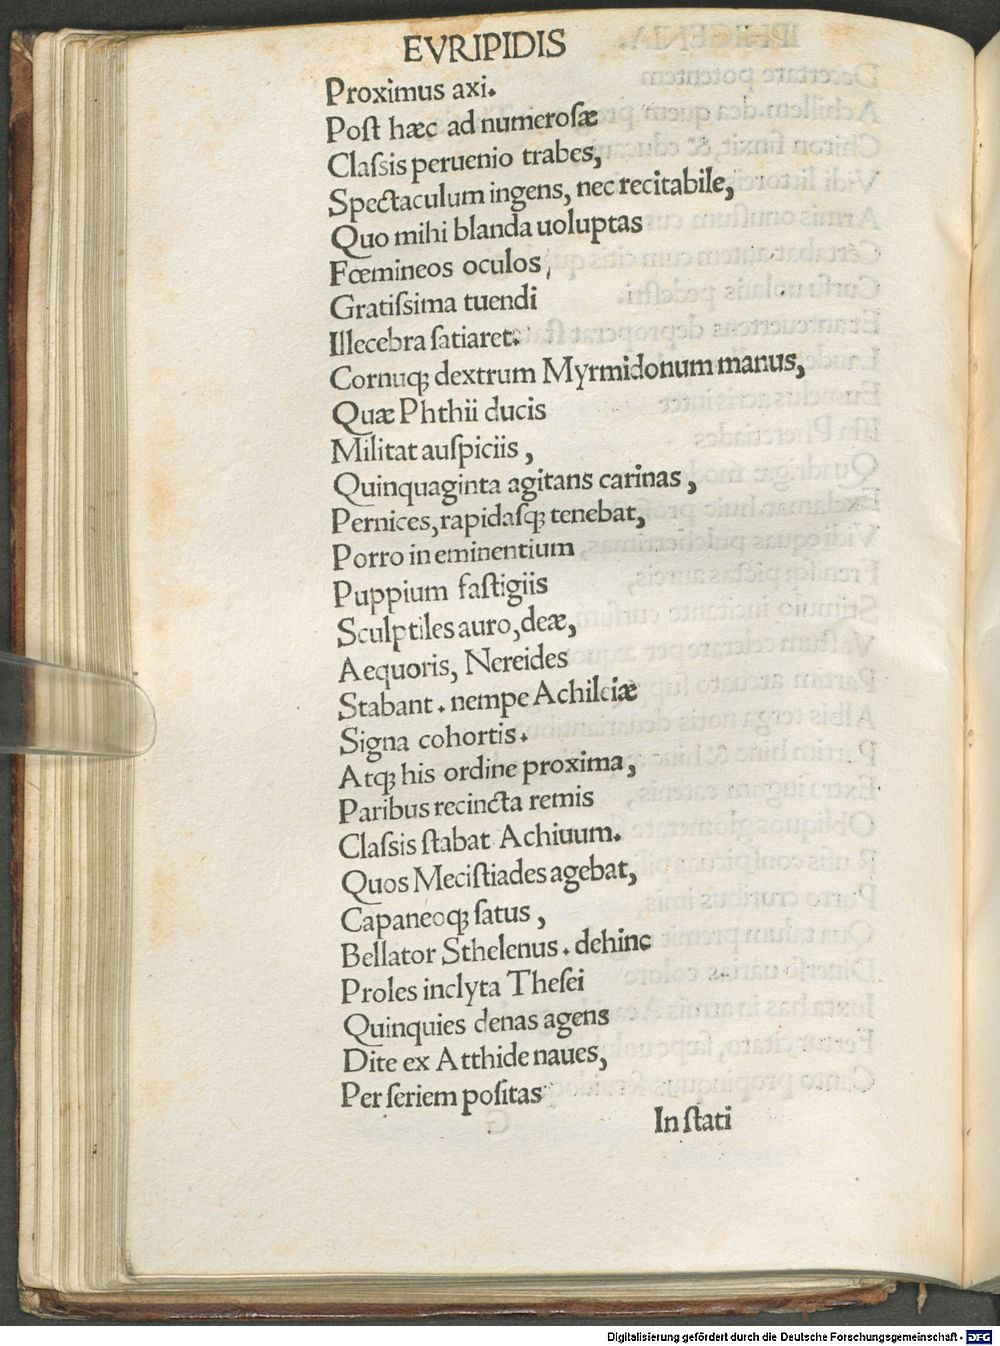 EVRIPIDIS
Proximus axi.
Poſt hæc ad numeroſæ
Claſsis peruenio trabes,
Spectaculum ingens, nec recitabile,
Quo mihi blanda uoluptas
Fœmineos oculos,
Gratiſsima tuendi
Illecebra ſatiaret.
Cornuq; dextrum Myrmidonum manus,
Quæ Phthii ducis
Militat auſpiciis,
Quinquaginta agitans carinas,
Pernices, rapidaſq; tenebat,
Porro in eminentium
Puppium faſtigiis
Sculptiles auro, deæ,
Aequoris, Nereides
Stabant. nempe Achileiæ
Signa cohortis.
Atq; his ordine proxima,
Paribus recincta remis
Claſsis ſtabat Achiuum.
Quos Meciſtiades agebat,
Capaneoq; ſatus,
Bellator Sthelenus. dehinc
Proles inclyta Theſei
Quinquies denas agens
Dite ex Atthide naues,
Per ſeriem poſitas
In ſtati
Digitalisierung gefördert durch die Deutsche Forschungsgemeinschaft - DFG